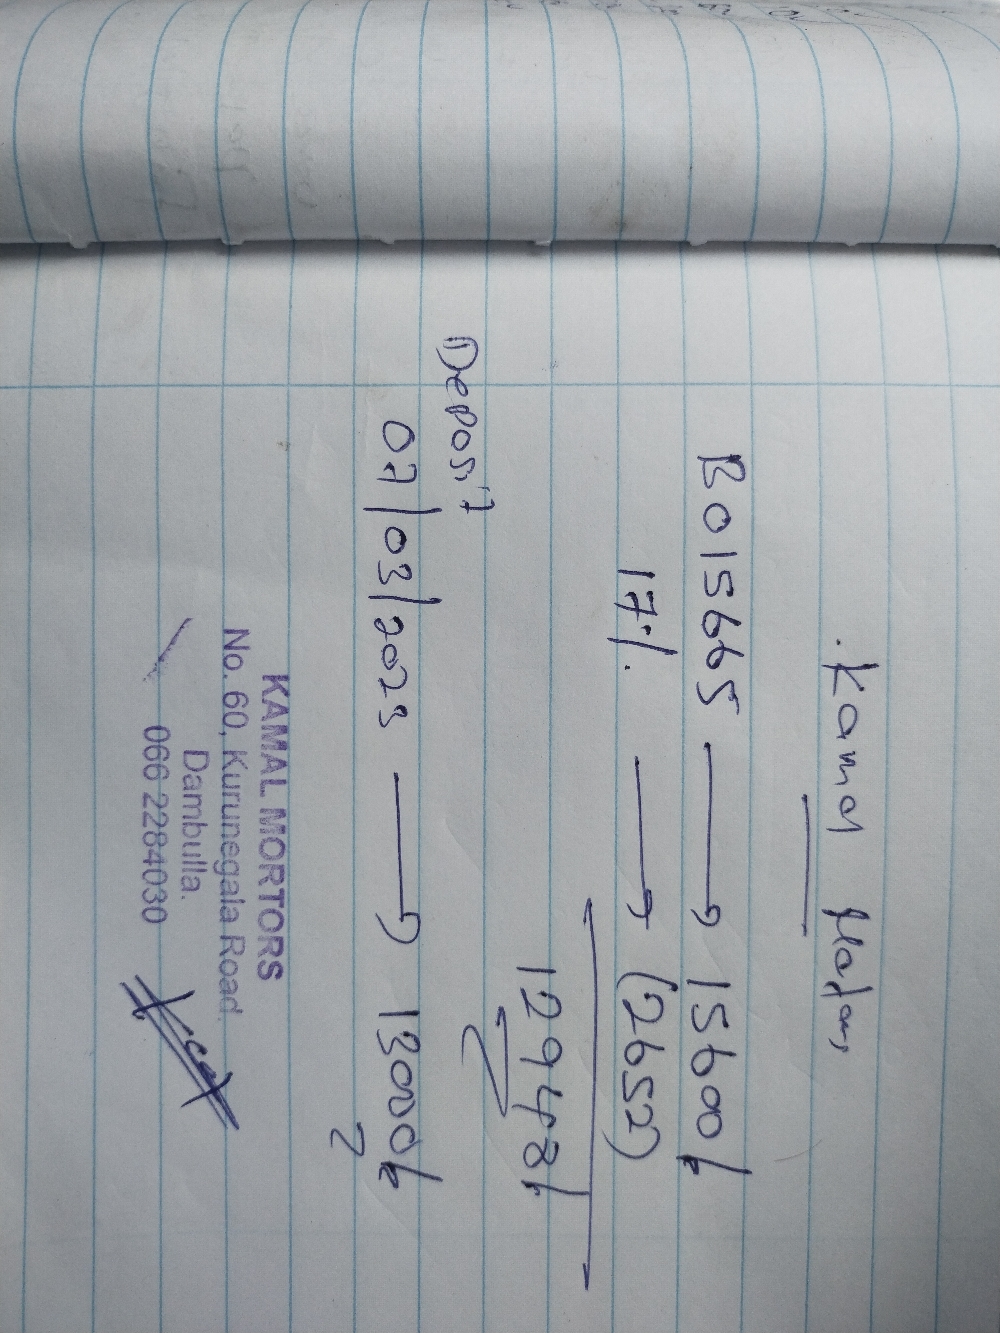 Kamal Motors
B015665 → 15600/=
17% → (2652)
12948/=
Deposit
07/03/2023 → 13000/=
KAMAL MORTORS
No. 60, Kurunegala Road
Dambulla.
066 2284030